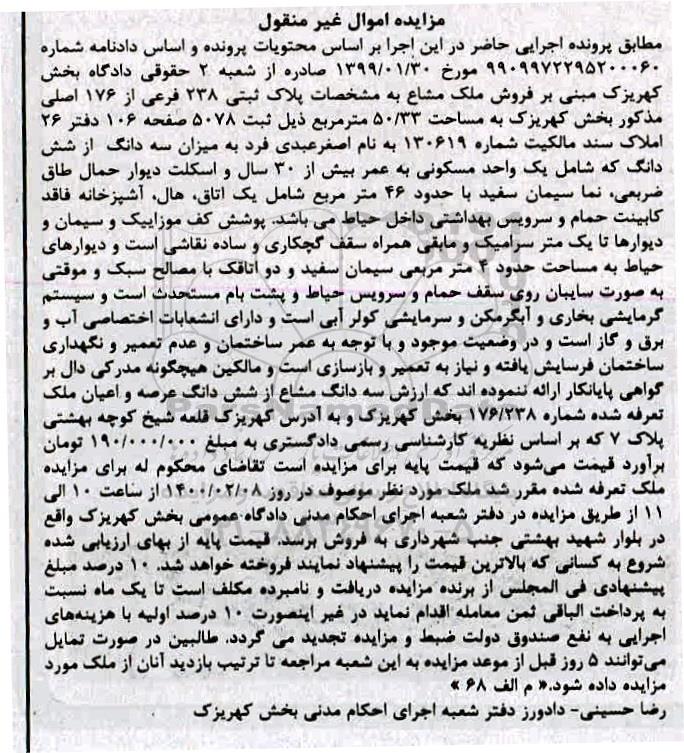 مزایده اموال غیر منقول
مطابق پرونده اجرایی حاضر در این اجرا بر اساس محتویات پرونده و اساس دادنامه شماره
۹۹۰۹۹۷۲۲۹۵۲۰۰۰۶۰ مورخ ۱۳۹۹/۰۱/۳۰ صادره از شعبه ۲ حقوقی دادگاه بخش
کهریزک مبنی بر فروش ملک مشاع به مشخصات پلاک ثبتی ۲۳۸ فرعی از ۱۷۶ اصلی
مذکور بخش کهریزک به مساحت ۵۰/۳۳ مترمربع ذیل ثبت ۵۰۷۸ صفحه ۱۰۶ دفتر ۲۶
املاک سند مالکیت شماره ۱۳۰۶۱۹ به نام اصغرعبدی فرد به میزان سه دانگ از شش
دانگ که شامل یک واحد مسکونی به عمر بیش از ۳۰ سال و اسکلت دیوار حمال طاق
ضربعی، نما سیمان سفید با حدود ۴۶ متر مربع شامل یک اتاق، هال، آشپزخانه فاقد
کابینت حمام و سرویس بهداشتی داخل حیاط می باشد. پوشش کف موزاییک و سیمان و
دیوارها تا یک متر سرامیک و مابقی همراه سقف گچکاری و ساده نقاشی است و دیوارهای
حیاط به مساحت حدود ۴ متر مربعی سیمان سفید و دو اتاقک با مصالح سبک و موقتی
به صورت سایبان روی سقف حمام و سرویس حیاط و پشت بام مستحدث است و سیستم
گرمایشی بخاری و آبگرمکن و سرمایشی کولر آبی است و دارای انشعابات اختصاصی آب و
برق و گاز است و در وضعیت موجود و با توجه به عمر ساختمان و عدم تعمیر و نگهداری
ساختمان فرسایش یافته و نیاز به تعمیر و بازسازی است و مالکین هیچگونه مدرکی دال بر
گواهی پایانکار ارائه ننموده اند که ارزش سه دانگ مشاع از شش دانگ عرصه و اعیان ملک
تعرفه شده شماره ۱۷۶/۲۳۸ بخش کهریزک و به آدرس کهریزک قلعه شیخ کوچه بهشتی
پلاک ۷ که بر اساس نظریه کارشناسی رسمی دادگستری به مبلغ ۱۹۰/۰۰۰/۰۰۰ تومان
برآورد قیمت می‌شود که قیمت پایه برای مزایده است تقاضای محکوم له برای مزایده
ملک تعرفه شده مقرر شد ملک مورد نظر موصوف در روز ۱۴۰۰/۰۲/۰۸ از ساعت ۱۰ الی
۱۱ از طریق مزایده در دفتر شعبه اجرای احکام مدنی دادگاه عمومی بخش کهریزک واقع
در بلوار شهید بهشتی جنب شهرداری به فروش برسد. قیمت پایه از بهای ارزیابی شده
شروع به کسانی که بالاترین قیمت را پیشنهاد نمایند فروخته خواهد شد. ۱۰ درصد مبلغ
پیشنهادی فی المجلس از برنده مزایده دریافت و نامبرده مکلف است تا یک ماه نسبت
به پرداخت الباقی ثمن معامله اقدام نماید در غیر اینصورت ۱۰ درصد اولیه با هزینه‌های
اجرایی به نفع صندوق دولت ضبط و مزایده تجدید می گردد. طالبین در صورت تمایل
می‌توانند ۵ روز قبل از موعد مزایده به این شعبه مراجعه تا ترتیب بازدید آنان از ملک مورد
مزایده داده شود.« م الف ۶۸ »
رضا حسینی- دادورز دفتر شعبه اجرای احکام مدنی بخش کهریزک